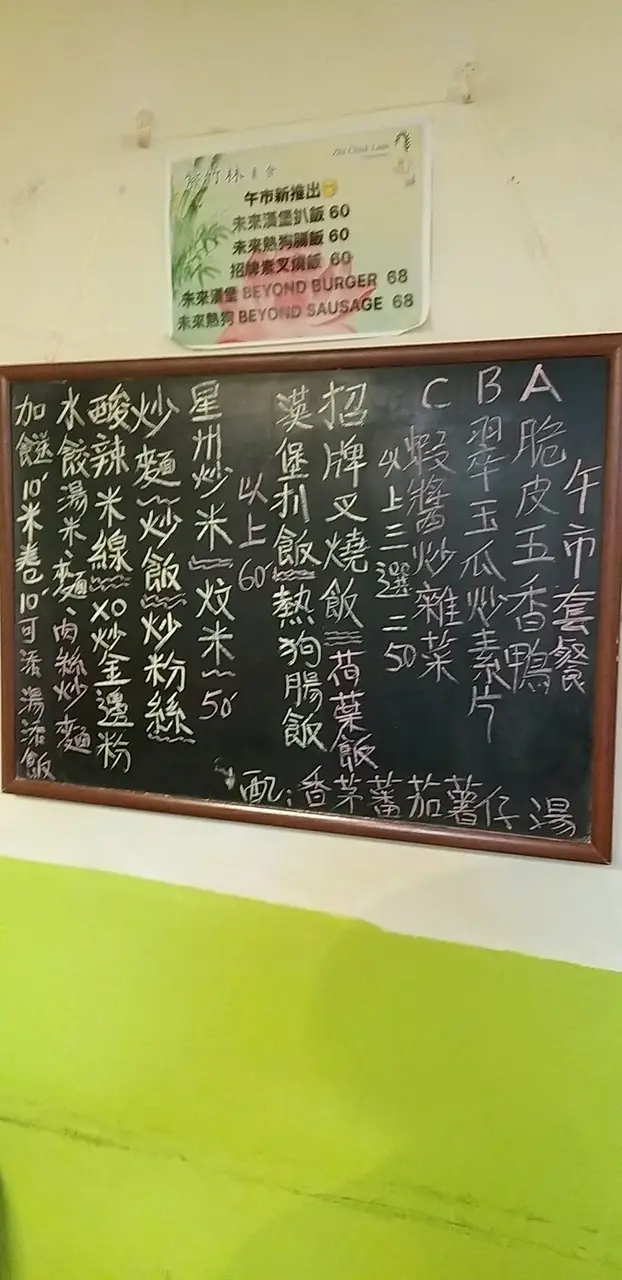 竹林素食
Zhi Chuk Lam
午市新推出
未來漢堡扒飯 60
未來熱狗腸飯 60
招牌素叉燒飯 60
未來漢堡 BEYOND BURGER 68
未來熱狗 BEYOND SAUSAGE 68
午市套餐
A 脆皮五香鴨
B 翠玉瓜炒素片
C 蝦醬炒雜菜
以上三選二 50
招牌叉燒飯 荷葉飯
漢堡扒飯 熱狗腸飯
以上 60
星州炒米 炆米 50
炒麵 炒飯 炒粉絲
酸辣米線 XO炒金邊粉
水餃湯米、麵、肉絲炒麵
加餸10 米卷10 可添湯添飯
配:香茅蕃茄薯仔湯